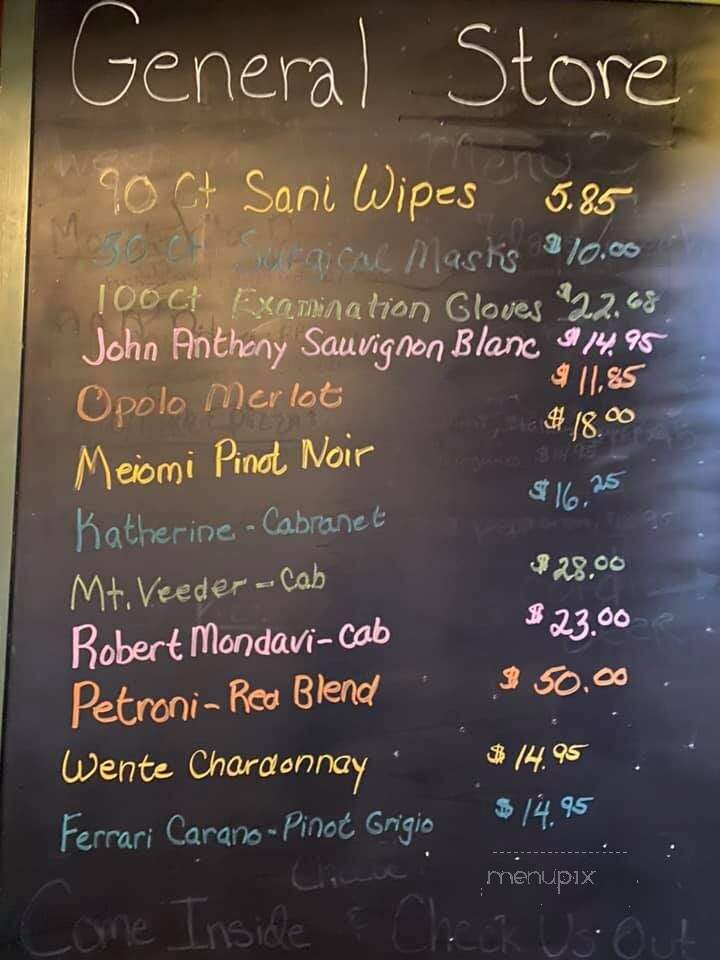 General Store
Menu
90 Ct Sani Wipes 5.85
50 Ct Surgical Masks $10.00
100ct Examination Gloves $22.68
John Anthony Sauvignon Blanc $14.95
Opolo Merlot $11.85
Meiomi Pinot Noir $18.00
Katherine - Cabranet $16.25
Mt. Veeder - Cab $28.00
Robert Mondavi - Cab $23.00
Petroni - Red Blend $50.00
Wente Chardonnay $14.95
Ferrari Carano - Pinot Grigio $14.95
menupix
Come Inside & Check Us Out